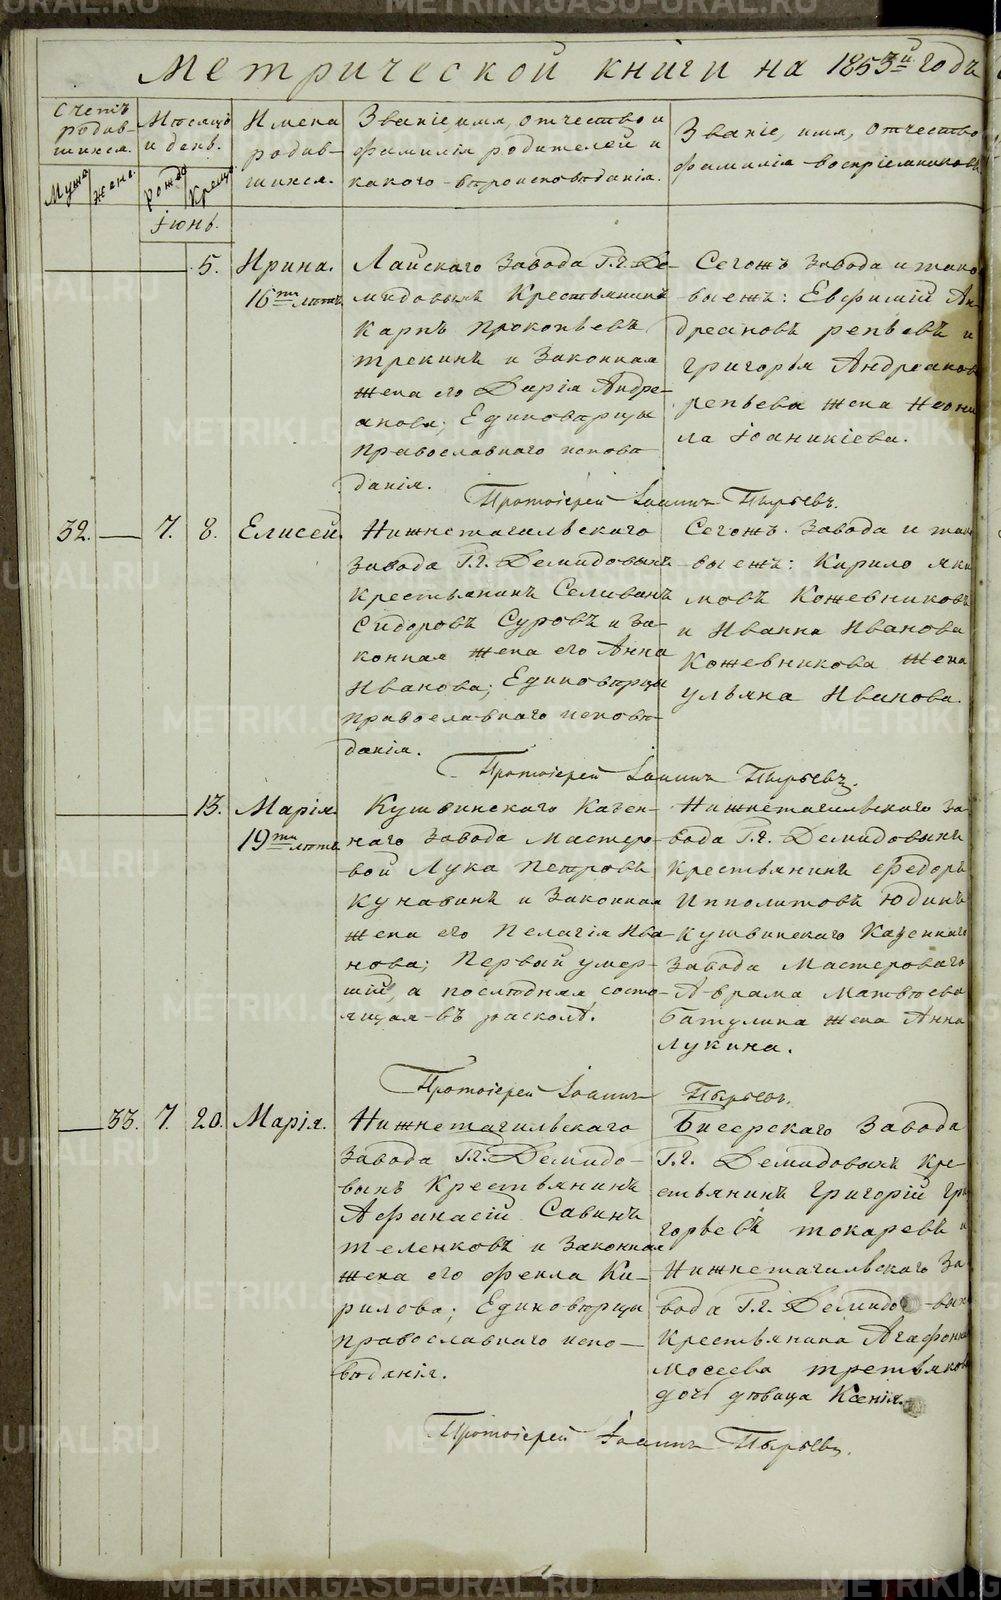 Метрической книги на 1853й годъ
Счетъ родив-шихся.
Мѣсяцъ и день.
Имена родив-шихся.
Званіе, имя, отчество и
фамилія родителей и
какого вѣроисповѣданія.
Званіе, имя, отчество
фамилія воспріемниковъ
Мужа
Жена.
Рожде
Креще
Іюнь.
5.
Ирина.
16ти лѣтъ
Лайскаго Завода Г.г. Де-
мидовыхъ Крестьянинъ
Карпъ Прокопьевъ
трекинъ и Законная
жена его Дарія Андре-
анова; Единовѣрцы
Православнаго исповѣ
данія.
Сегожъ Завода и тако
выежъ: Евфимій Ан-
дреановъ репьевъ и
григорья Андреанов
репьева жена Неони
ла Іоаникіева.
Протоіерей Іоаннъ Пырьевъ.
32.
7.
8.
Елисей.
Нижнетагильскаго
Завода Г.г. Демидовыхъ
Крестьянинъ Селиванъ
Сидоровъ Суровъ и За-
конная жена его Анна
Иванова; Единовѣрцы
православнаго исповѣ-
данія.
Сегожъ Завода и так
выежъ: Кирило яки
мовъ Кожевниковъ
и Иванна Иванова
Кожевникова жена
ульяна Иванова.
Протоіерей Іоаннъ Пырьевъ.
13.
Марія.
19ти лѣтъ
Кушвинскаго Казен-
наго Завода Мастеро-
вой Лука Петровъ
Кунавинъ и Законная
жена его Пелагія Ива-
нова; Первый умер-
шій, а послѣдняя состо-
ящая въ расколѣ.
Нижнетагильскаго За-
вода Г.г. Демидовыхъ
Крестьянинъ Федоръ
Ипполитовъ Юдинъ
Кушвинскаго Казеннаго
Завода Мастероваго
Аврама Матвѣева
Батулина жена Анна
Лукина.
Протоіерей Іоаннъ Пырьевъ.
33.
7.
20.
Марія.
Нижнетагильскаго
Завода Г.г. Демидо-
выхъ Крестьянинъ
Афанасій Савинъ
теленковъ и Законная
жена его фекла Ки-
рилова; Единовѣрцы
православнаго испо-
вѣданія.
Бисерскаго Завода
Г.г. Демидовыхъ Кре-
стьянинъ Григорій Гри
горьевъ токаревъ и
Нижнетагильскаго За
вода Г.г. Демидо-вых
Крестьянина Агафона
Мосеева третьяков
дочь дѣвица Ксенія.
Протоіерей Іоаннъ Пырьевъ.
METRIKI.GASO-URAL.RU